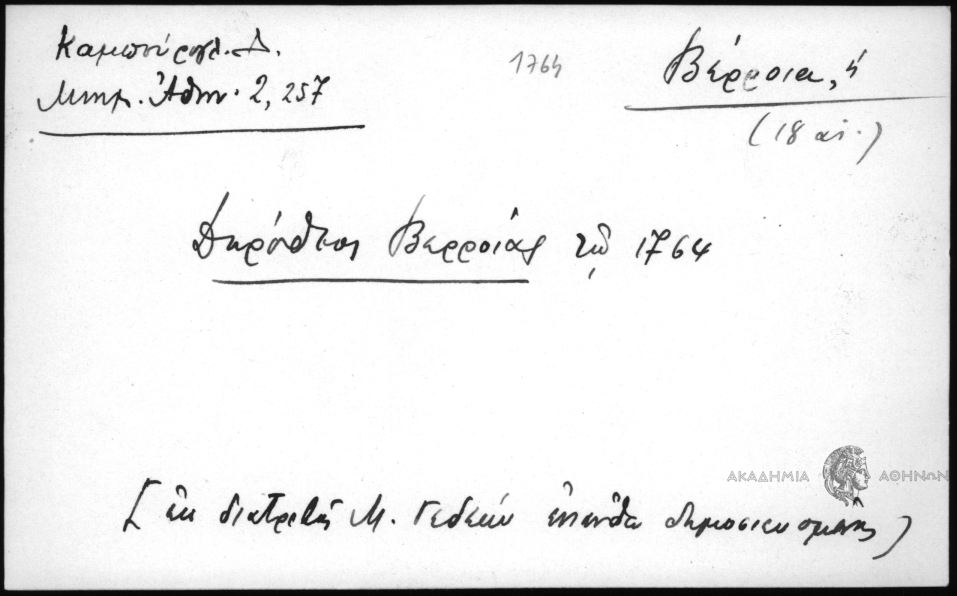 Καμπούρογλ. Δ.
Μνημ. Ἀθην. 2, 257
1764
Βέρροια, ἡ
(18 αἰ.)
Δωρόθεος Βερροίας τῷ 1764
[ἐκ διατριβῆς Μ. Γεδεὼν ἐνταῦθα δημοσιευομένης)
ΑΚΑΔΗΜΙΑ ΑΘΗΝΩΝ